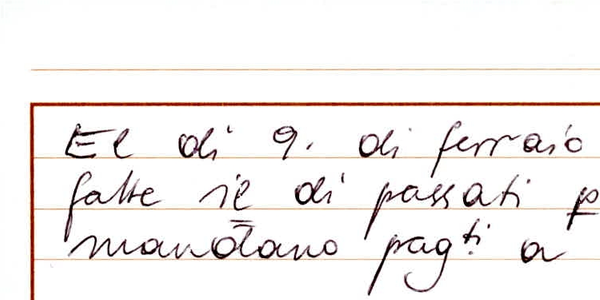 El di 9. di ferraio
fatte il di passati p
mandano pagti a